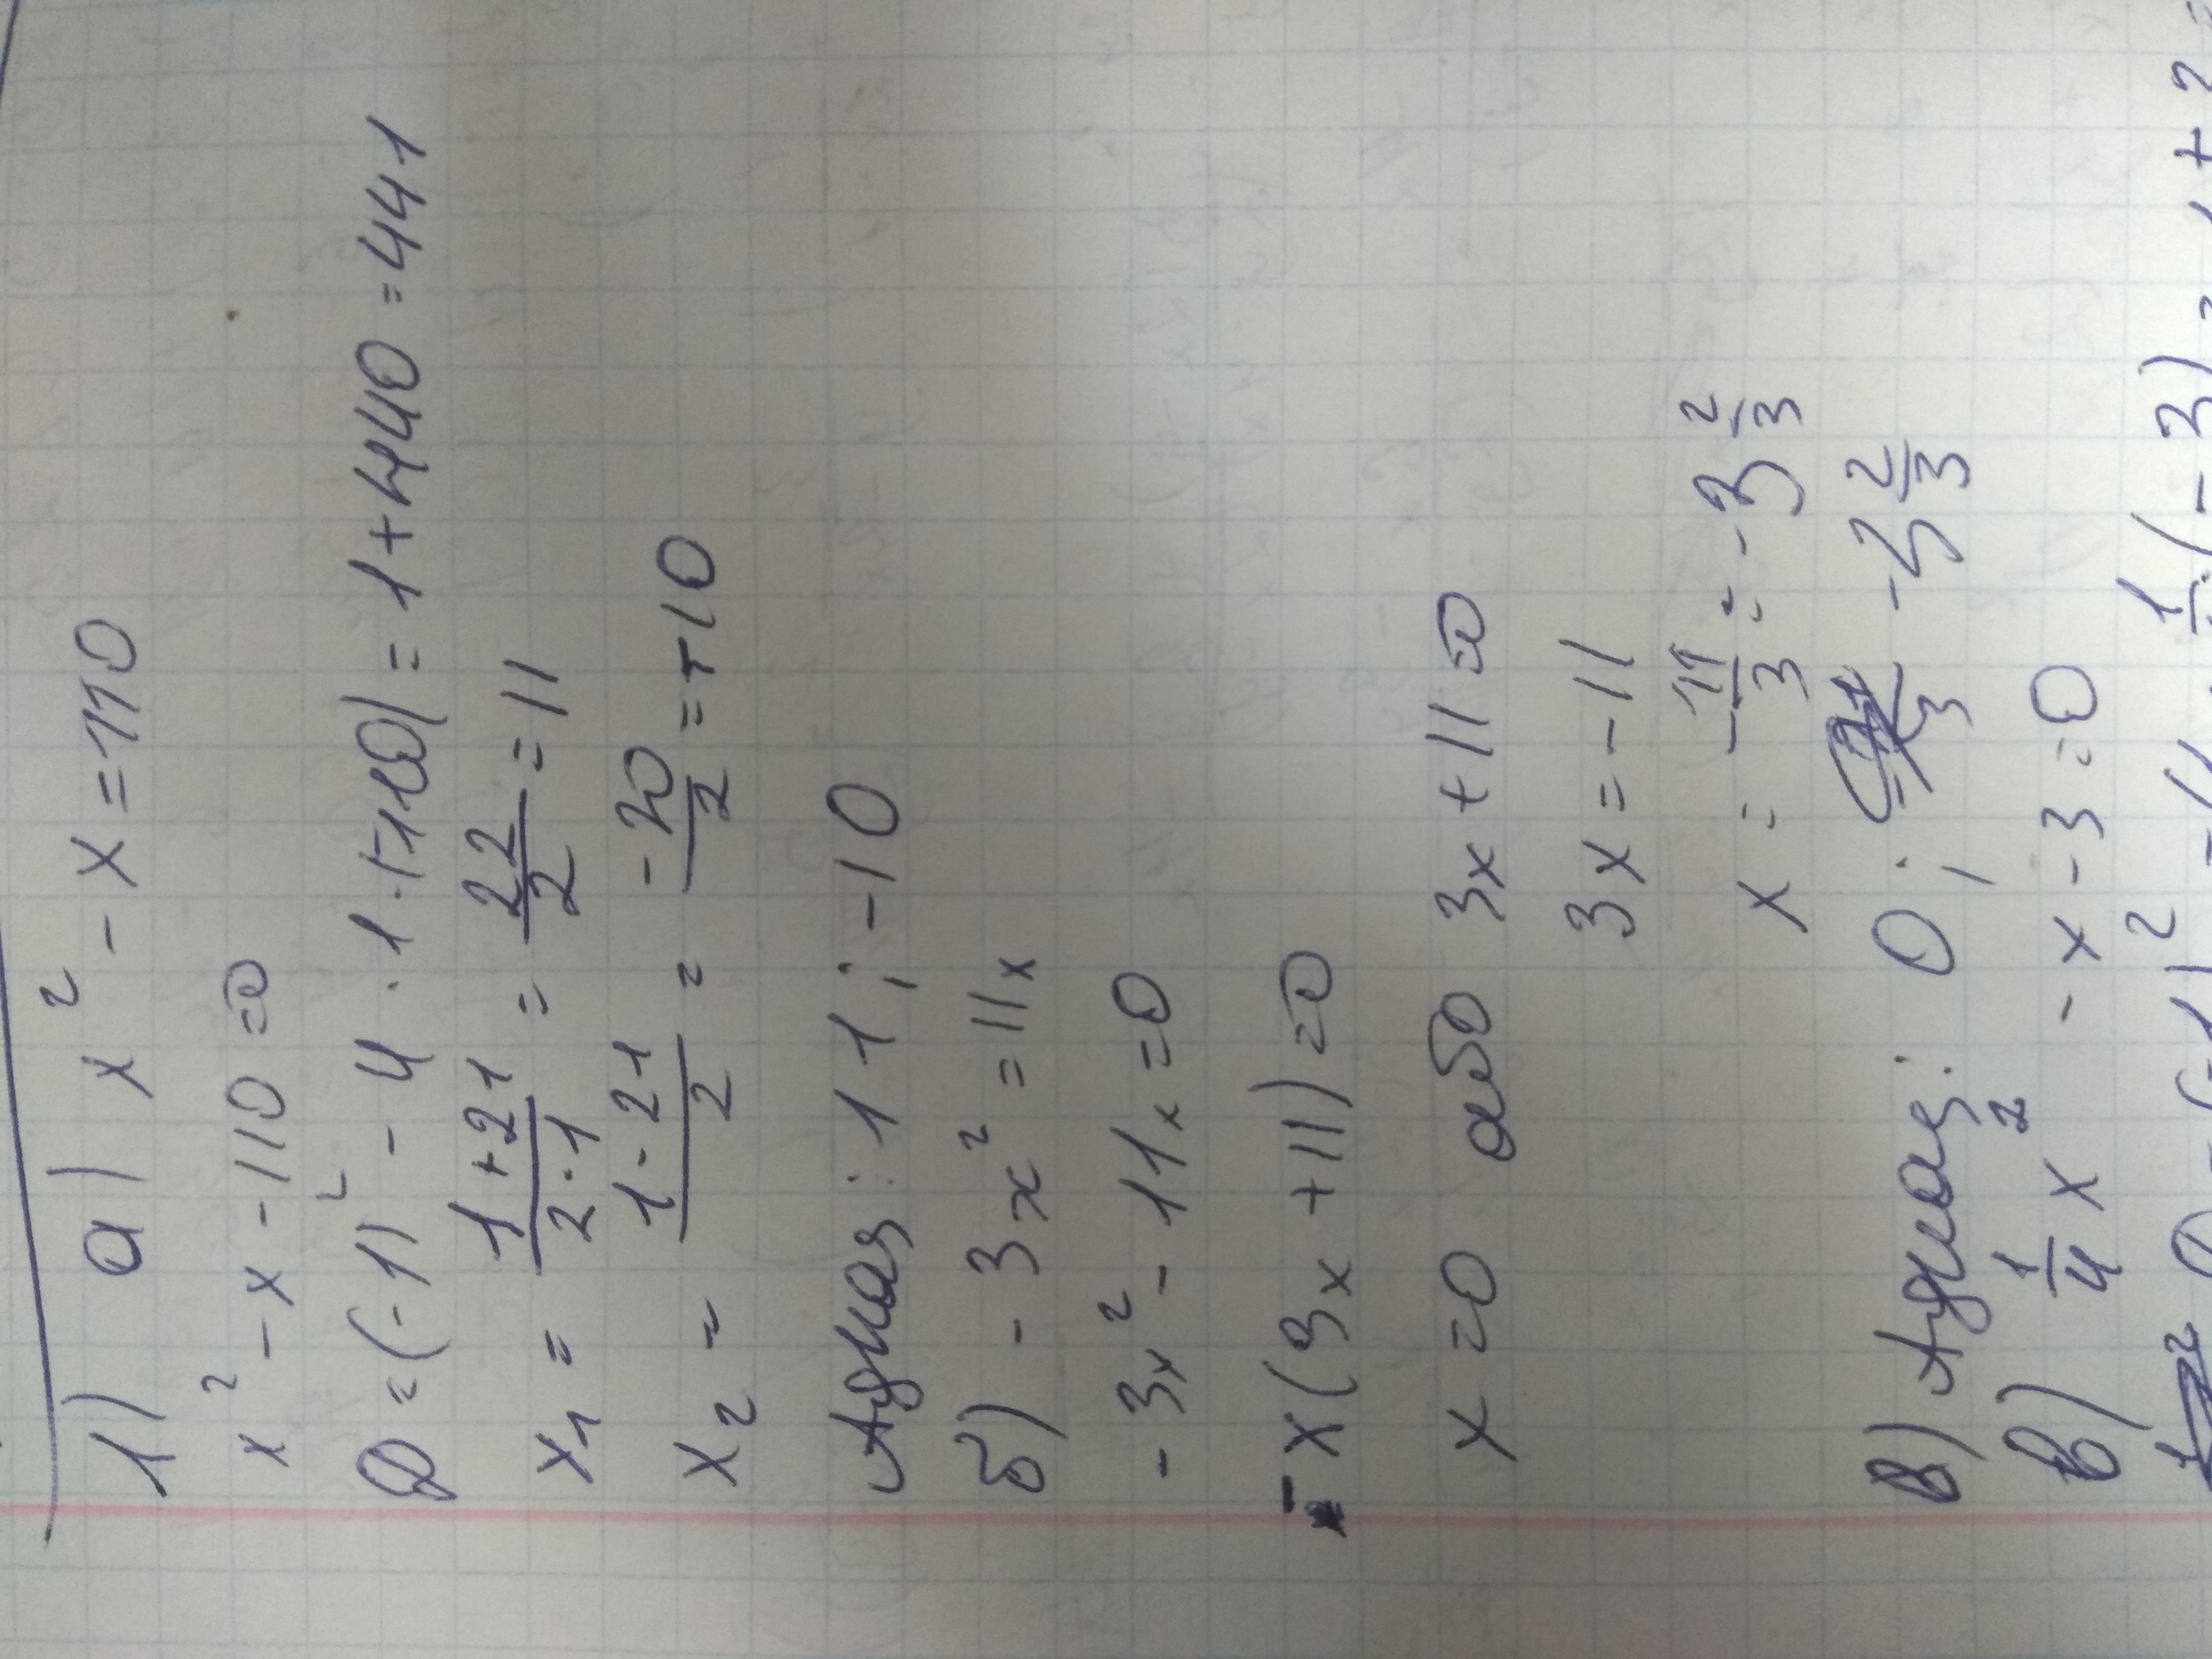 1) а) x² - x = 110
x² - x - 110 = 0
D = (-1)² - 4 · 1 · (-110) = 1 + 440 = 441
x₁ = (1+21)/(2·1) = 22/2 = 11
x₂ = (1-21)/2 = -20/2 = -10
Адказ: 11; -10
б) - 3x² = 11x
- 3x² - 11x = 0
- x(3x + 11) = 0
x = 0 або 3x + 11 = 0
3x = -11
x = -11/3 = -3 2/3
в) Адказ: 0; -3 2/3
в) 1/4 x² - x - 3 = 0
D = (-1)² - 4 · 1/4 · (-3) = 1 +